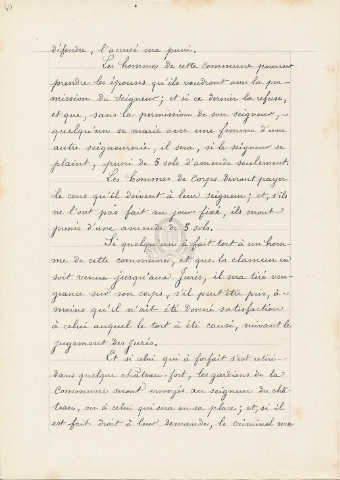 défendre, l'accusé sera puni.
Les hommes de cette commune pourront
prendre les épouses qu'ils voudront avec la per-
mission du seigneur; et si ce dernier la refuse,
et que, sans la permission de son seigneur,
quelqu'un se marie avec une femme d'une
autre seigneurerie, il sera, si le seigneur se
plaint, puni de 5 sols d'amende seulement.
Les hommes de corps devront payer
le cens qu'il doivent à leur seigneur; et, s'ils
ne l'ont pas fait au jour fixé, ils seront
punis d'une amende de 5 sols.
Si quelqu'un à fait tort à un hom-
me de cette commune, et que la clameur en
soit venue jusqu'aux Jurés, il sera tiré ven-
geance sur son corps, s'il peut être pris, à
moins qu'il n'ait été donné satisfaction
à celui auquel le tort à été causé, suivant le
jugement des Jurés.
Et si celui qui à forfait s'est retiré
dans quelque château-fort, les gardiens de la
Commune seront envoyés au seigneur du châ-
teau, ou à celui qui sera en sa place; et, si il
est fait droit à leur demandes, le criminel sera